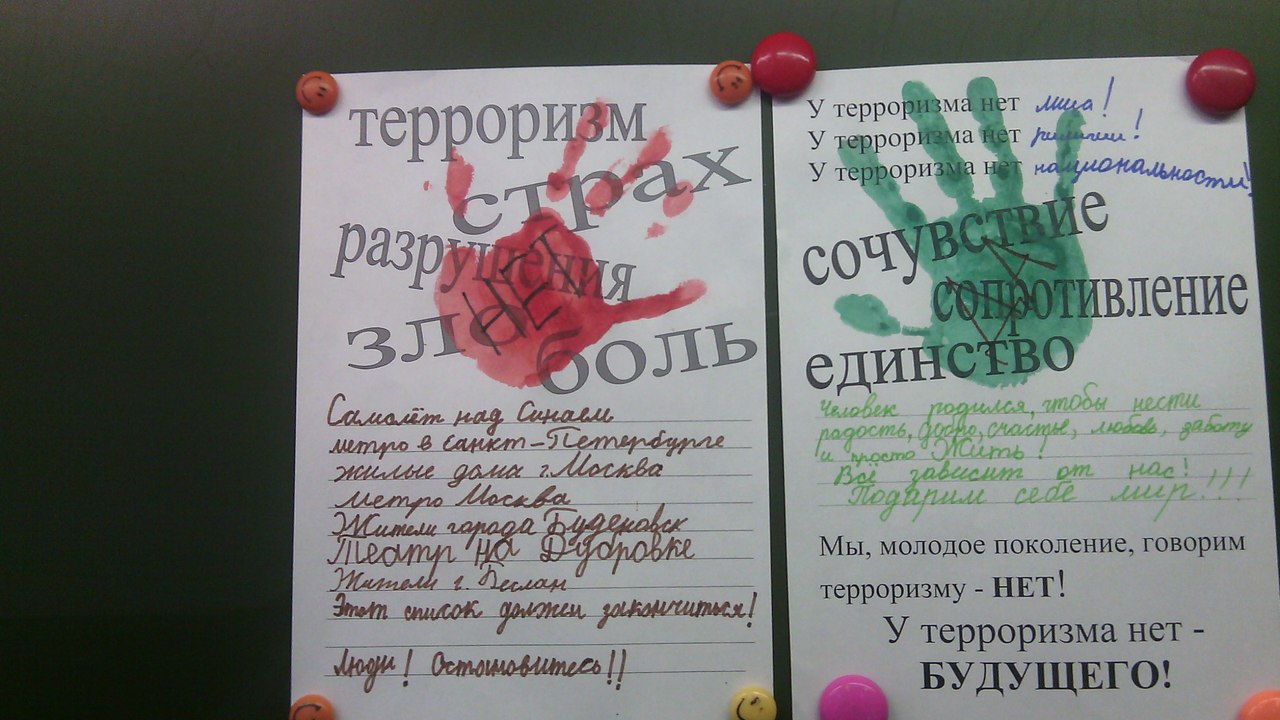 терроризм
страх
разрушения
НЕТ
зло
боль
Самолёт над Синаем
метро в Санкт-Петербурге
жилые дома г.Москва
метро Москва
Жители города Буденовск
Театр на Дубровке
Жители г. Беслан
Этот список должен закончиться!
Люди! Остановитесь!!
У терроризма нет лица!
У терроризма нет религии!
У терроризма нет национальности!
сочувствие
сопротивление
единство
Человек родился, чтобы нести
радость, добро, счастье, любовь, заботу
и просто Жить!
Всё зависит от нас!
Подарим себе мир!!!
Мы, молодое поколение, говорим
терроризму - НЕТ!
У терроризма нет -
БУДУЩЕГО!